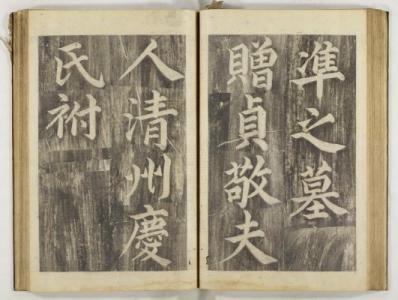 準之墓
贈貞敬夫
人清州慶
氏祔